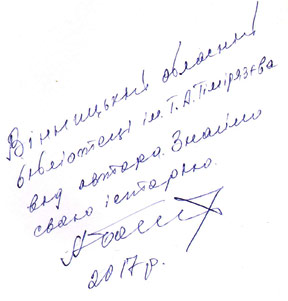 Вінницькій обласній
бібліотеці ім. Т.А.Тімірязєва
від автора. Знаймо
свою історію.
2017 р.